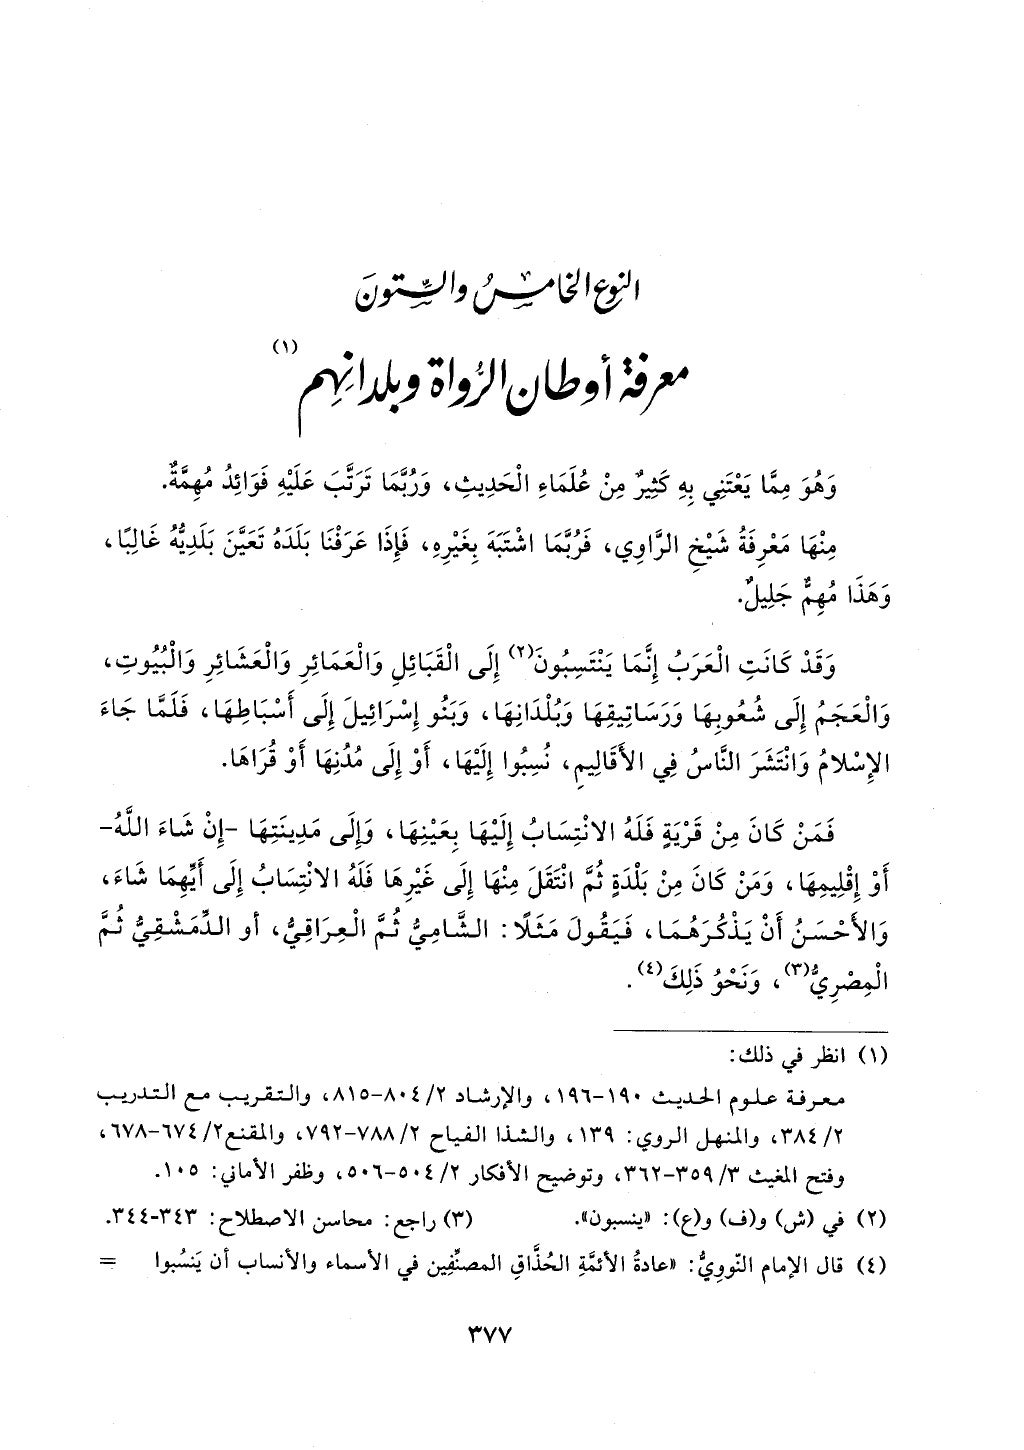 النوع الخامسُ والسِّتونَ
معرفة أوطان الرُّواة وبلدانِهم (١)
وَهُوَ مِمَّا يَعْتَنِي بِهِ كَثِيرٌ مِنْ عُلَمَاءِ الْحَدِيثِ، وَرُبَّمَا تَرَتَّبَ عَلَيْهِ فَوَائِدُ مُهِمَّةٌ.
مِنْهَا مَعْرِفَةُ شَيْخِ الرَّاوِي، فَرُبَّمَا اشْتَبَهَ بِغَيْرِهِ، فَإِذَا عَرَفْنَا بَلَدَهُ تَعَيَّنَ بَلَدِيُّهُ غَالِبًا،
وَهَذَا مُهِمٌّ جَلِيلٌ.
وَقَدْ كَانَتِ الْعَرَبُ إِنَّمَا يَنْتَسِبُونَ(٢) إِلَى الْقَبَائِلِ وَالْعَمَائِرِ وَالْعَشَائِرِ وَالْبُيُوتِ،
وَالْعَجَمُ إِلَى شُعُوبِهَا وَرَسَاتِيقِهَا وَبُلْدَانِهَا، وَبَنُو إِسْرَائِيلَ إِلَى أَسْبَاطِهَا، فَلَمَّا جَاءَ
الإِسْلامُ وَانْتَشَرَ النَّاسُ فِي الأَقَالِيمِ، نُسِبُوا إِلَيْهَا، أَوْ إِلَى مُدُنِهَا أَوْ قُرَاهَا.
فَمَنْ كَانَ مِنْ قَرْيَةٍ فَلَهُ الانْتِسَابُ إِلَيْهَا بِعَيْنِهَا، وَإِلَى مَدِينَتِهَا -إِنْ شَاءَ اللَّهُ-
أَوْ إِقْلِيمِهَا، وَمَنْ كَانَ مِنْ بَلْدَةٍ ثُمَّ انْتَقَلَ مِنْهَا إِلَى غَيْرِهَا فَلَهُ الانْتِسَابُ إِلَى أَيِّهِمَا شَاءَ،
وَالأَحْسَنُ أَنْ يَذْكُرَهُمَا، فَيَقُولَ مَثَلًا: الشَّامِيُّ ثُمَّ الْعِرَاقِيُّ، أو الدِّمَشْقِيُّ ثُمَّ
الْمِصْرِيُّ(٣)، وَنَحْوُ ذَلِكَ(٤).
(١) انظر في ذلك:
معرفة علوم الحديث ١٩٠-١٩٦، والإرشاد ٢/ ٨٠٤-٨١٥، والتقريب مع التدريب
٢/ ٣٨٤، والمنهل الروي: ١٣٩، والشذا الفياح ٢/ ٧٨٨-٧٩٢، والمقنع٢/ ٦٧٤-٦٧٨،
وفتح المغيث ٣/ ٣٥٩-٣٦٢، وتوضيح الأفكار ٢/ ٥٠٤-٥٠٦، وظفر الأماني: ١٠٥.
(٢) في (ش) و(ف) و(ع): «ينسبون». (٣) راجع: محاسن الاصطلاح: ٣٤٣-٣٤٤.
(٤) قال الإمام النّوويُّ: «عادةُ الأئمَّةِ الحُذَّاقِ المصنِّفِين في الأسماء والأنساب أن يَنسُبوا =
٣٧٧